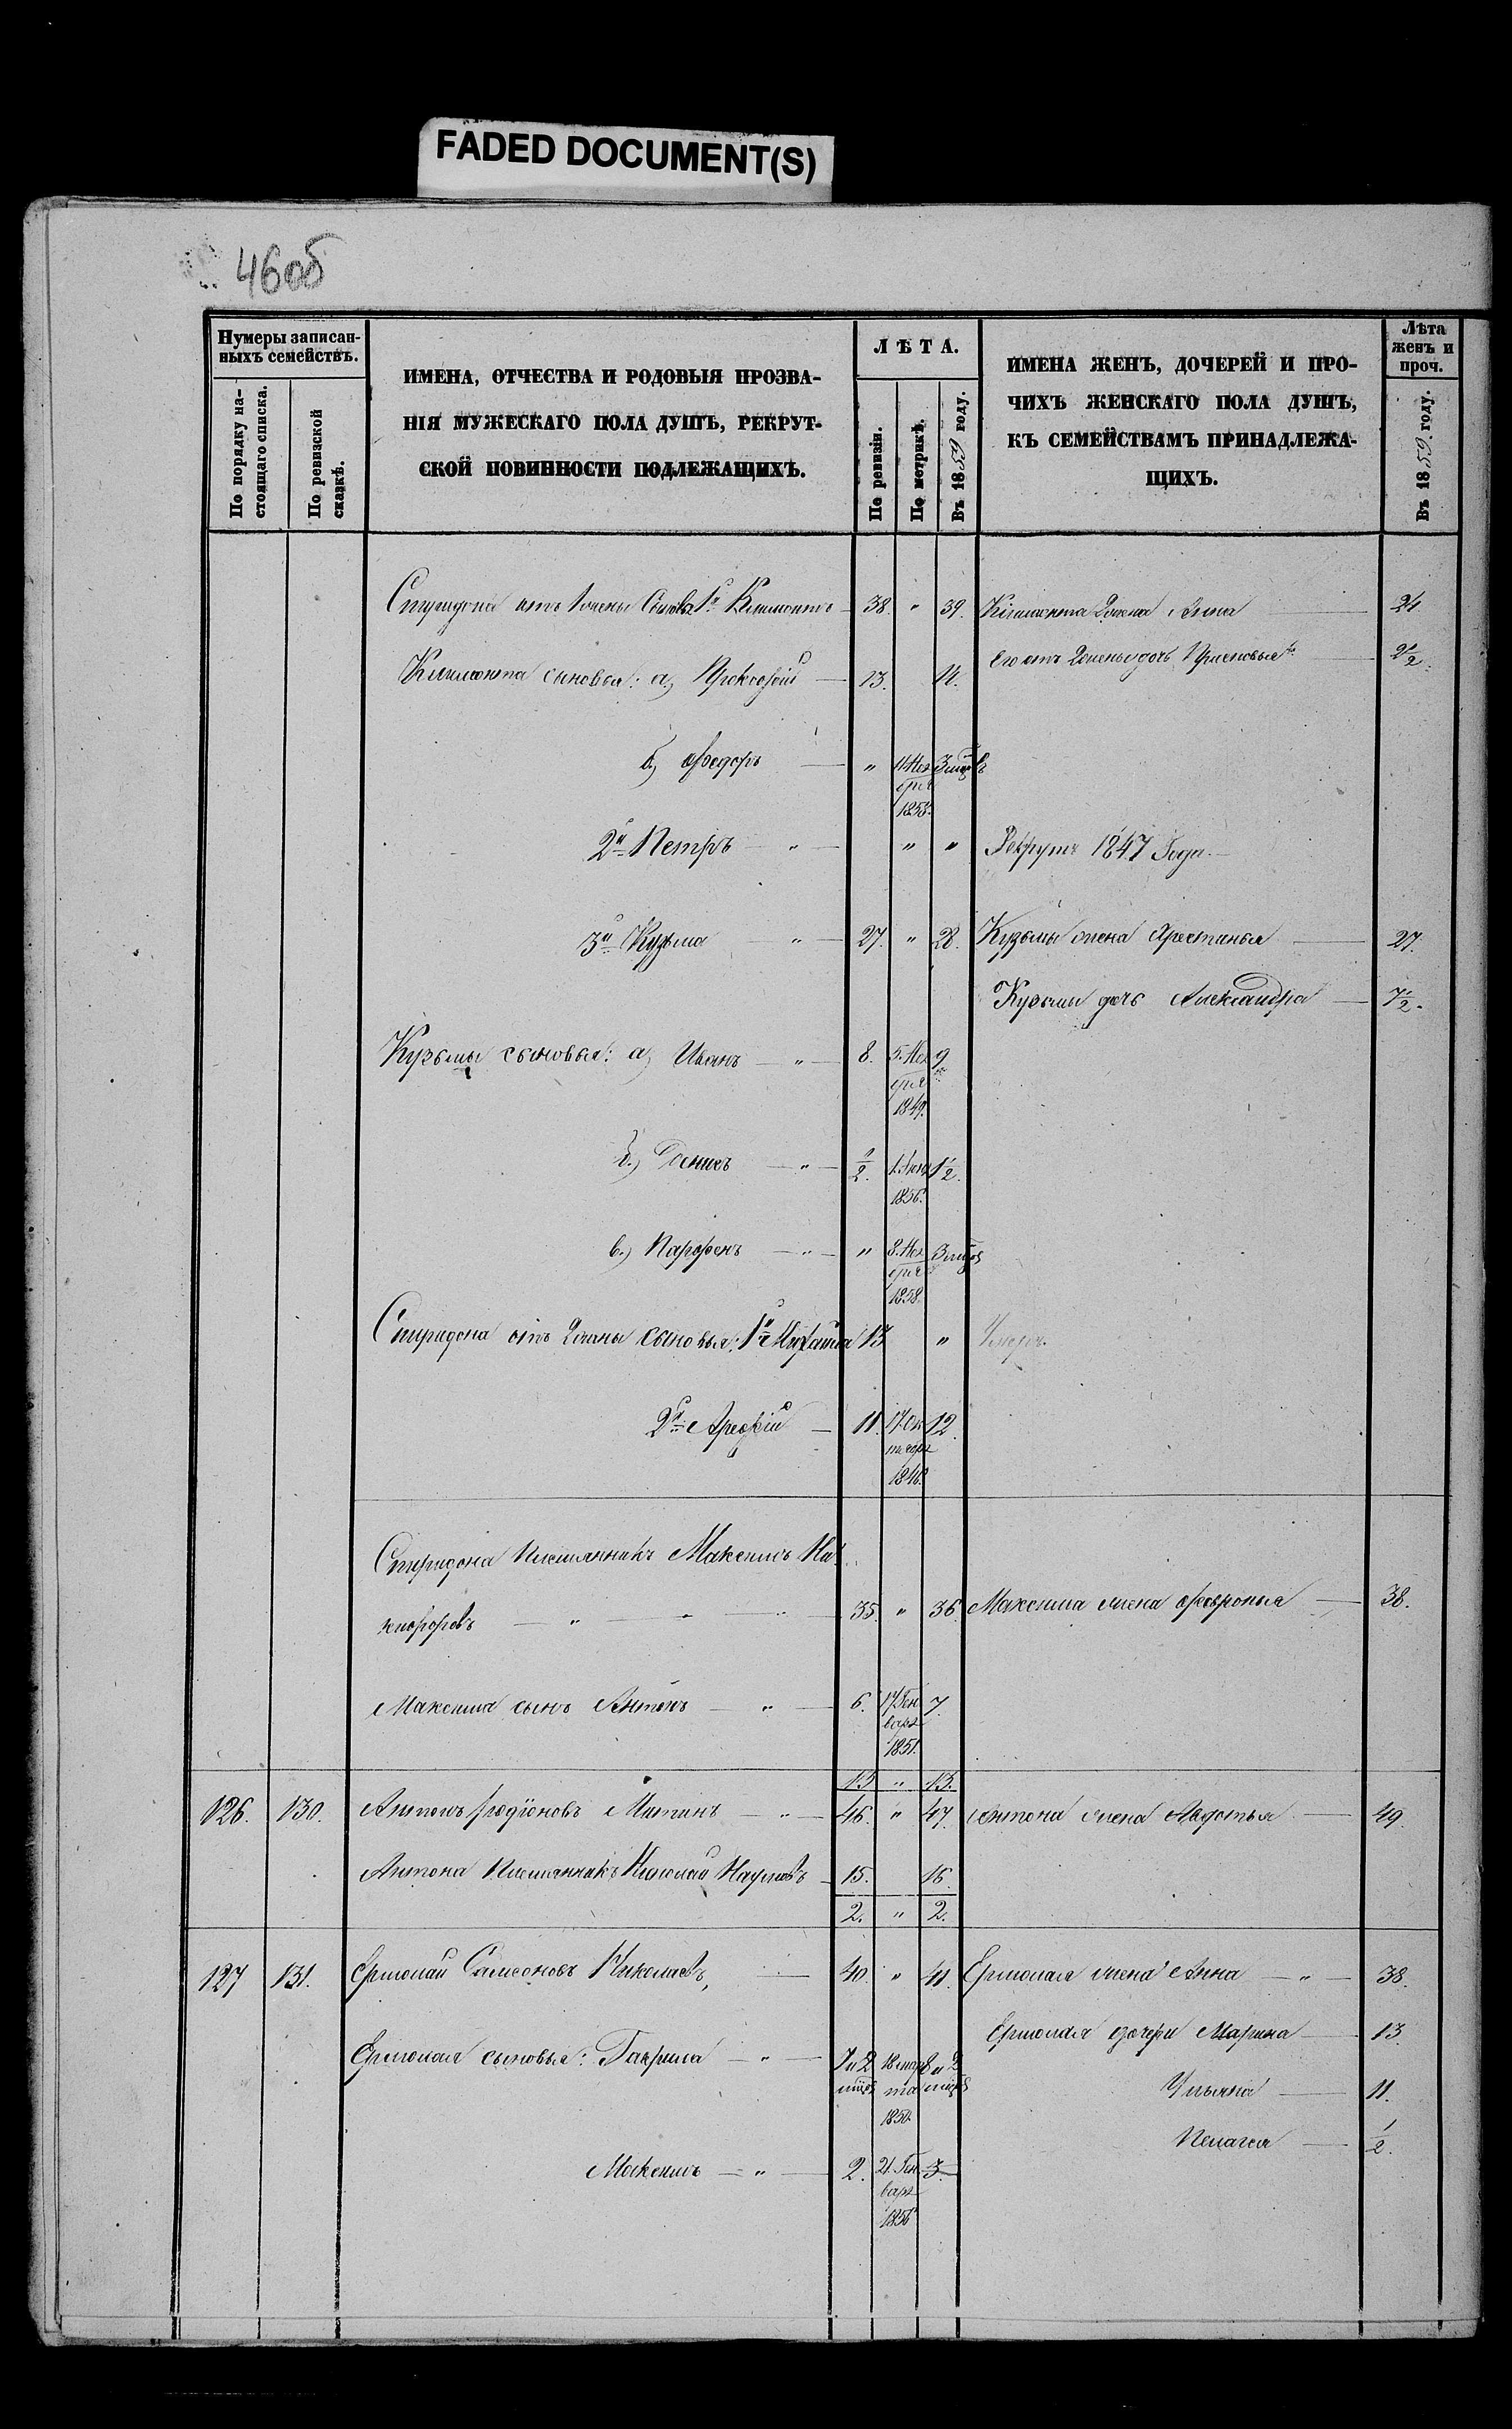 FADED DOCUMENT(S)
46об
Нумеры записан-
ныхъ семействъ.
По порядку на-
стоящаго списка.
По ревизской
сказкѣ.
ИМЕНА, ОТЧЕСТВА И РОДОВЫЯ ПРОЗВА-
НІЯ МУЖЕСКАГО ПОЛА ДУШЪ, РЕКРУТ-
СКОЙ ПОВИННОСТИ ПОДЛЕЖАЩИХЪ.
ЛѢТА.
По ревизіи.
По метрикѣ.
Въ 1859 году.
ИМЕНА ЖЕНЪ, ДОЧЕРЕЙ И ПРО-
ЧИХЪ ЖЕНСКАГО ПОЛА ДУШЪ,
КЪ СЕМЕЙСТВАМЪ ПРИНАДЛЕЖА-
ЩИХЪ.
Лѣта
женъ и
проч.
Въ 1859 году.
Спиридона отъ 1 жены 1й Климонтъ 38. " 39. Климонта 2 жена Анна 24
Его отъ 2 жены дочь 2½.
Климонта сыновья: а, Прокофій 13. 14.
б, Федоръ "
1858.
2й Петръ " " " Рекрутъ 1847 Года
3й Кузьма " 27. " 28. Кузьмы жена 27.
Кузьмы дочь Александра 7½.
Кузьмы сыновья: а, Иванъ " 8. 5. Но 9
ября
1849.
б, Денисъ " ½ 1½.
1856.
в, Парфенъ " " 8. Но 3 мѣс
ября
1858.
Спиридона отъ 2 жены сыновья: 1й Михайла 13 " Умеръ.
2й Арефій 11. 17. Ок 12.
тября
1846.
Спиридона Племянникъ Максимъ Ни
кифоровъ " 35 " 36. Максима жена Февронья 38.
Максима сынъ Антонъ " 6. 17. Ген 7.
варя
1851.
13 " 13.
126. 130. Антонъ Родіоновъ Митинъ " 46. " 47. Антона жена Авдотья 49.
Антона Племянникъ Николай Наумовъ 15. 16.
2. " 2.
127 131. Ермолай Самсоновъ Николаевъ, 40. " 41. Ермолая жена Анна " 38.
Ермолая дочери Марина 13
Ермолая сыновья: Гаврила " 7 и 2 18 мар 8 и 2
мѣс та мѣс
1850.
Ульяна 11.
Пелагея ½.
Максимъ " 2. 21. Ген 3.
варя
1856